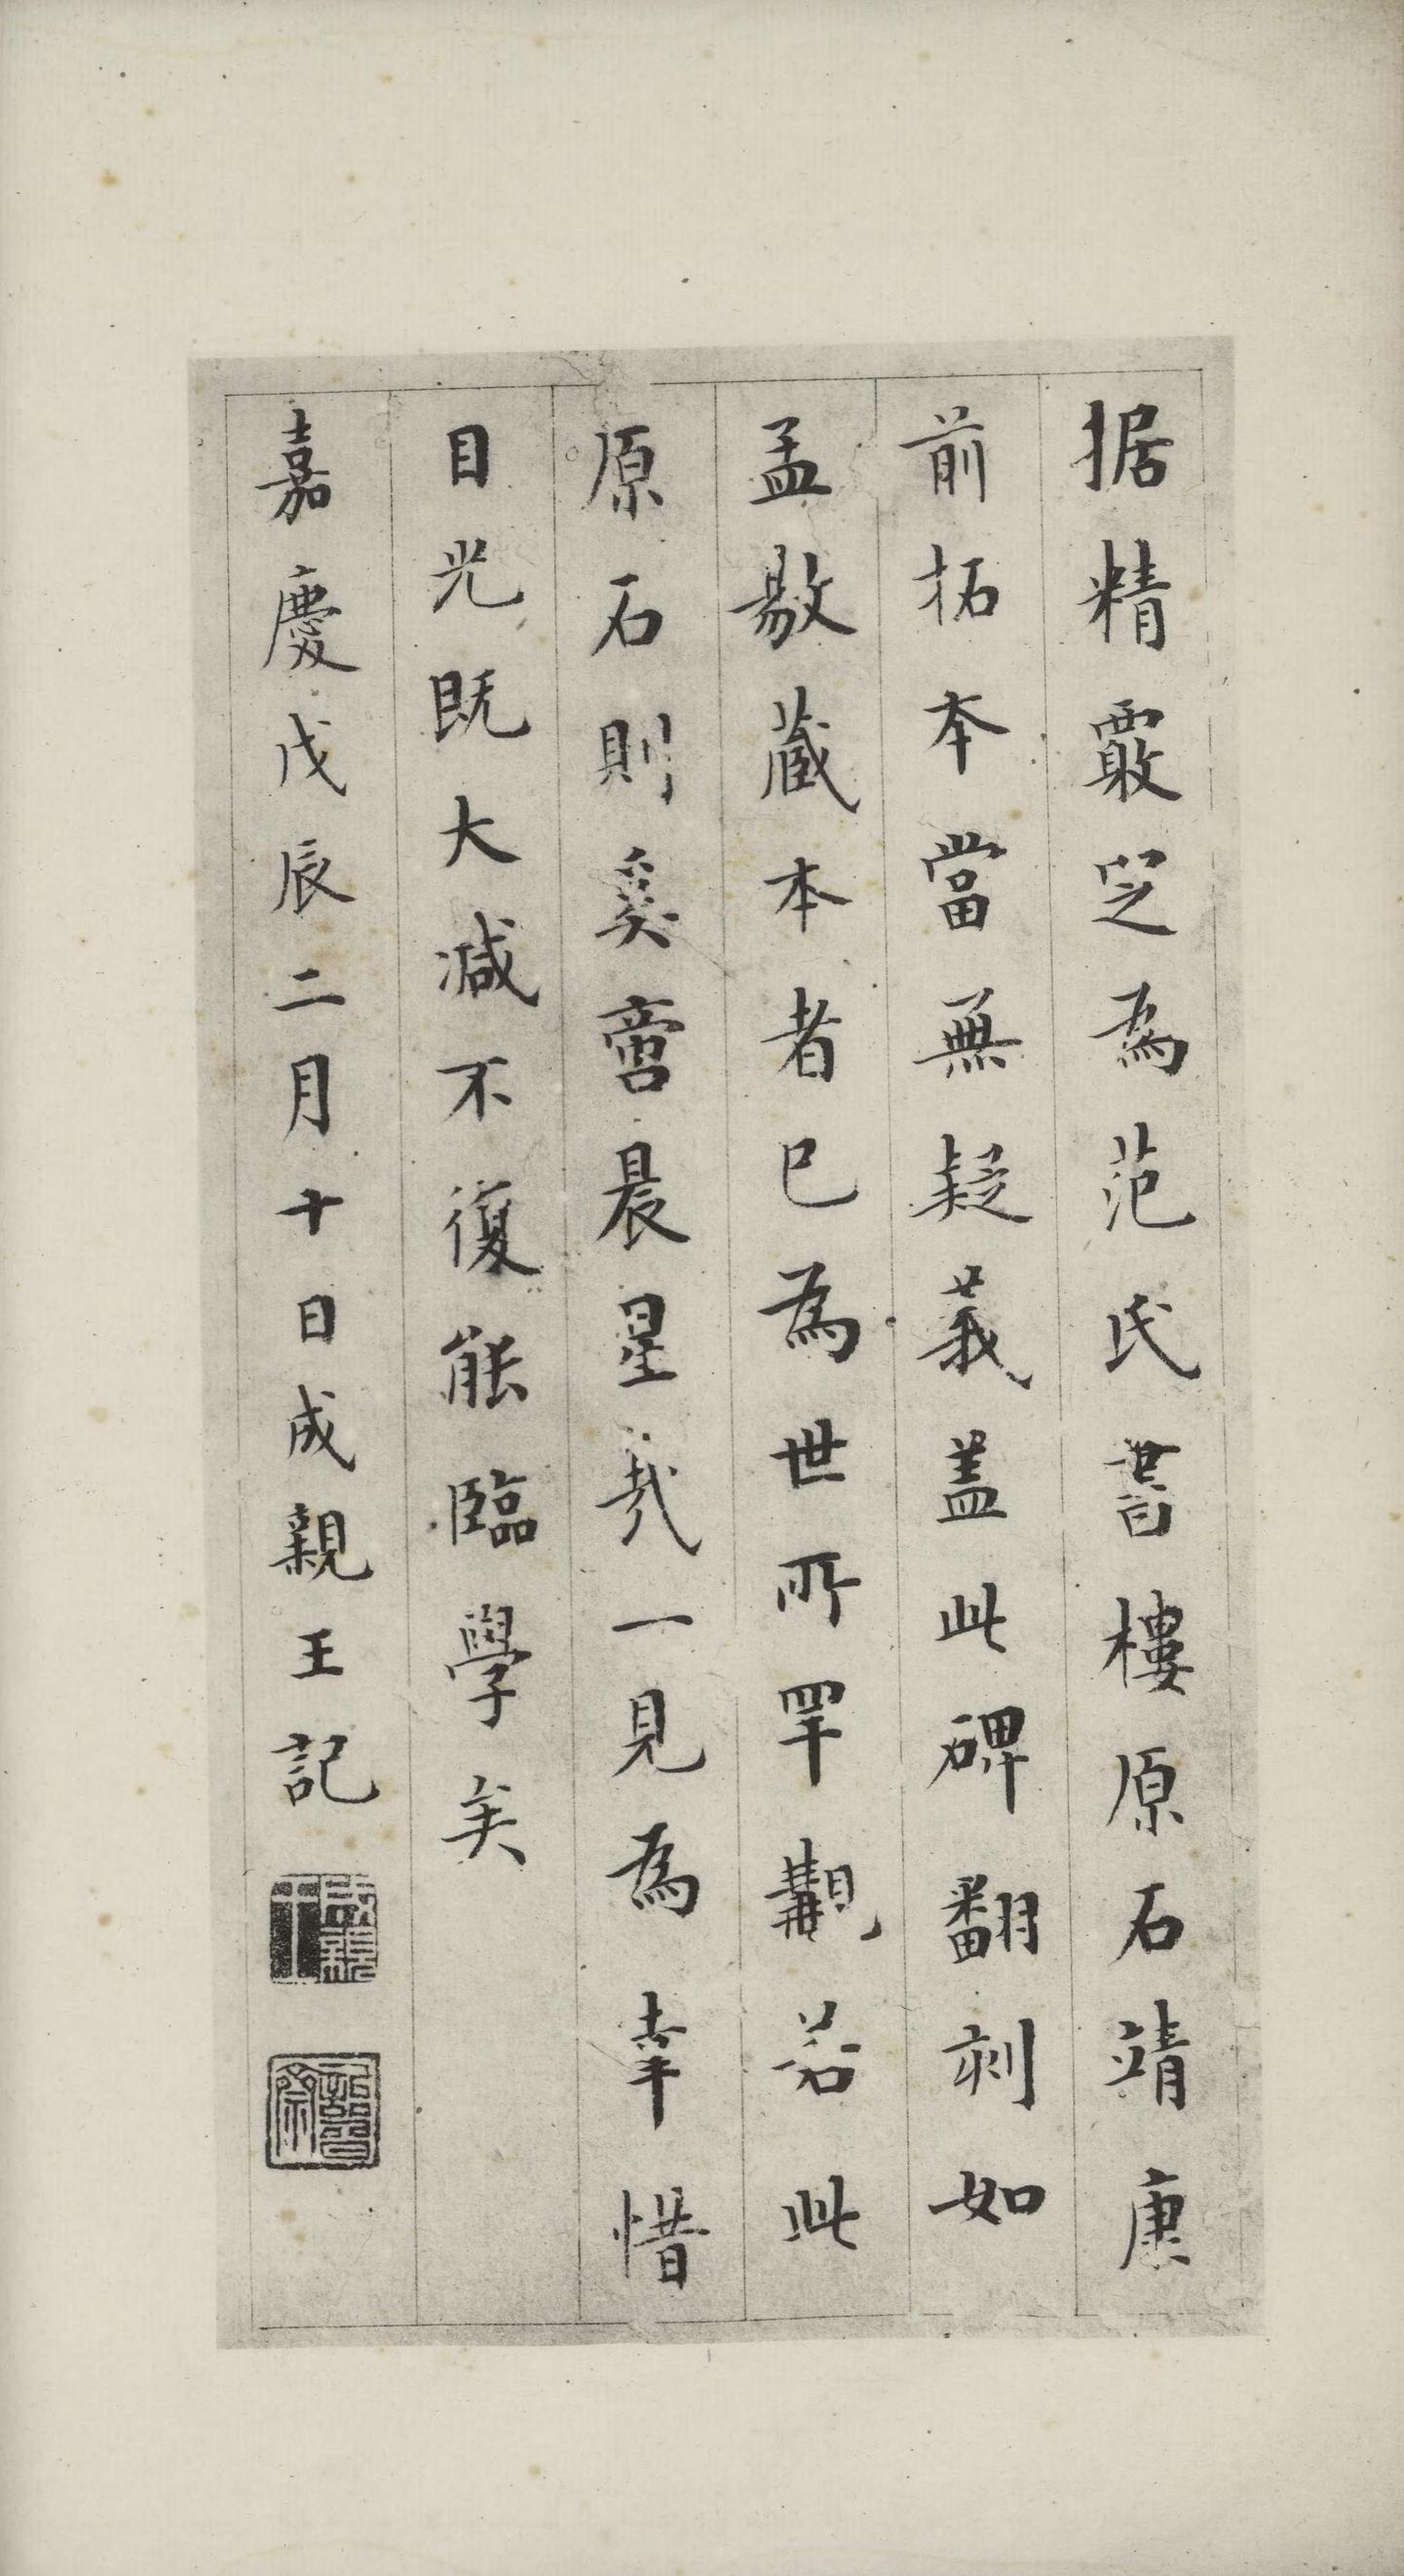 据精覈定為范氏書樓原石靖康
前拓本當無疑義蓋此碑翻刻如
孟敭藏本者已為世所罕覯若此
原石則奚啻晨星哉一見為幸惜
目光既大減不復能臨學矣
嘉慶戊辰二月十日成親王記
成親王
詒晉齋